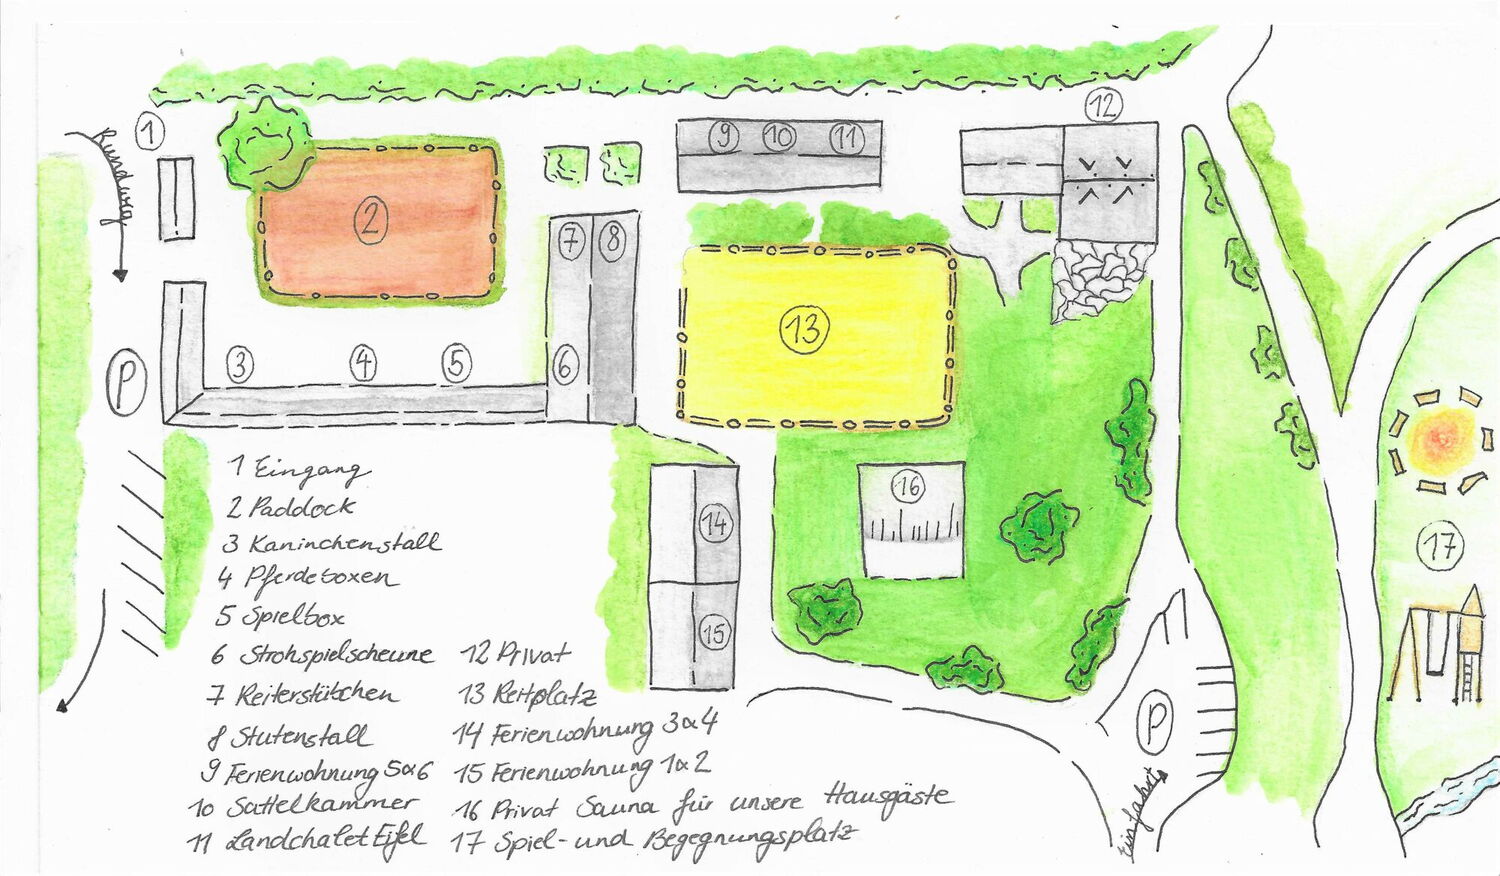 1
Rundweg
2
12
9 10 11
7 8
13
3 4 5 6
P
16
14
15
17
P
Einfahrt
1 Eingang
2 Paddock
3 Kaninchenstall
4 Pferdeboxen
5 Spielbox
6 Strohspielscheune
7 Reiterstübchen
8 Stutenstall
9 Ferienwohnung 5&6
10 Sattelkammer
11 Landchalet Eifel
12 Privat
13 Reitplatz
14 Ferienwohnung 3&4
15 Ferienwohnung 1&2
16 Privat Sauna für unsere Hausgäste
17 Spiel- und Begegnungsplatz